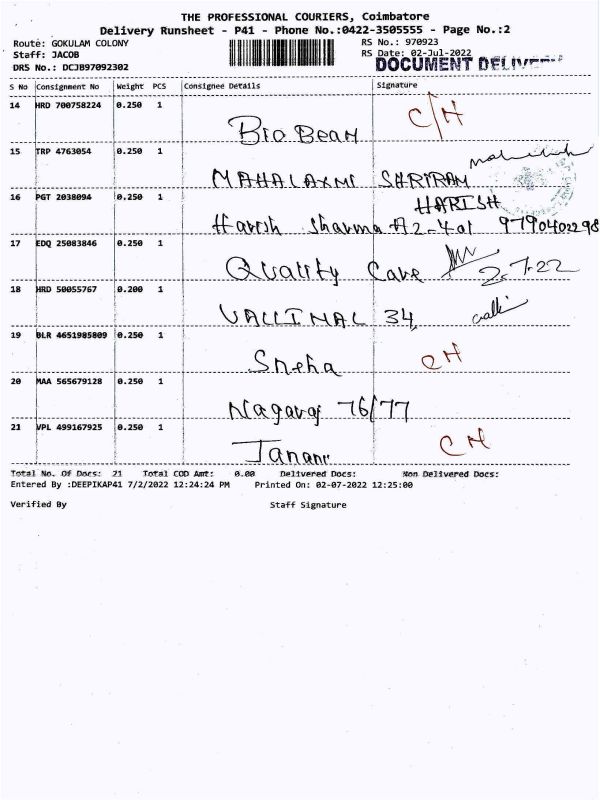 THE PROFESSIONAL COURIERS, Coimbatore
Delivery Runsheet - P41 - Phone No.:0422-3505555 - Page No.:2
Route: GOKULAM COLONY RS No.: 970923
Staff: JACOB RS Date: 02-Jul-2022
DRS No.: DCJB97092302 DOCUMENT
S No Consignment No Weight PCS Consignee Details Signature
14 HRD 700758224 0.250 1
Bio Bean C/H
15 TRP 4763054 0.250 1
MAHALAXMI SHRIRAM
16 PGT 2038094 0.250 1 HARISH
Harish Sharma A2-401 9790402298
17 EDQ 25083846 0.250 1
Quality Care 2.7.22
18 HRD 50055767 0.200 1
VALLIMAL 34, valli
19 BLR 4651985809 0.250 1
Sneha CH
20 MAA 565679128 0.250 1
Nagaraj 76/77
21 VPL 499167925 0.250 1
Janani CH
Total No. Of Docs: 21 Total COD Amt: 0.00 Delivered Docs: Non Delivered Docs:
Entered By :DEEPIKAP41 7/2/2022 12:24:24 PM Printed On: 02-07-2022 12:25:00
Verified By Staff Signature